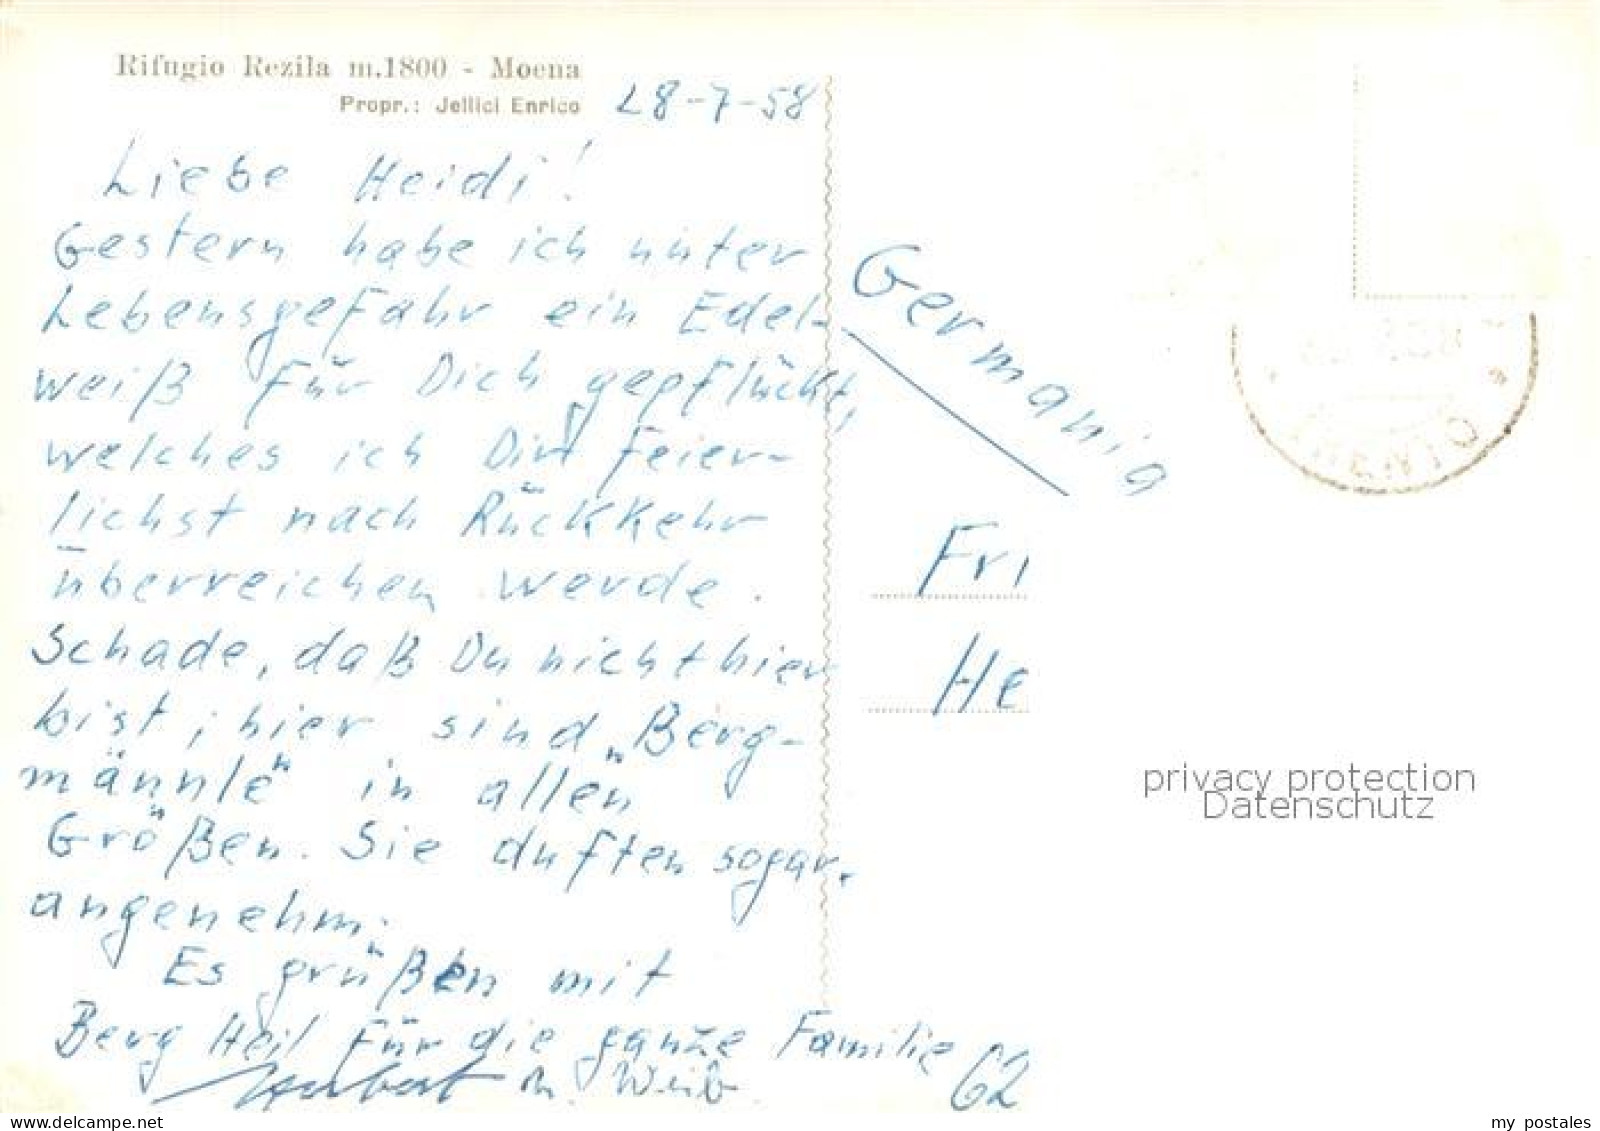 Rifugio Rezila m.1800 - Moena
Propr.: Jellici Enrico
28-7-58
Liebe Heidi!
Gestern habe ich unter
Lebensgefahr ein Edel-
weiß für Dich gepflückt,
welches ich Dir feier-
lichst nach Rückkehr
überreichen werde.
Schade, daß Du nicht hier
bist, hier sind „Berg-
männle" in allen
Größen. Sie duften sogar
angenehm.
Es grüßen mit
Berg Heil für die ganze Familie
Herbert u. Weib
Germania
Fri
He
62
privacy protection
Datenschutz
my postales